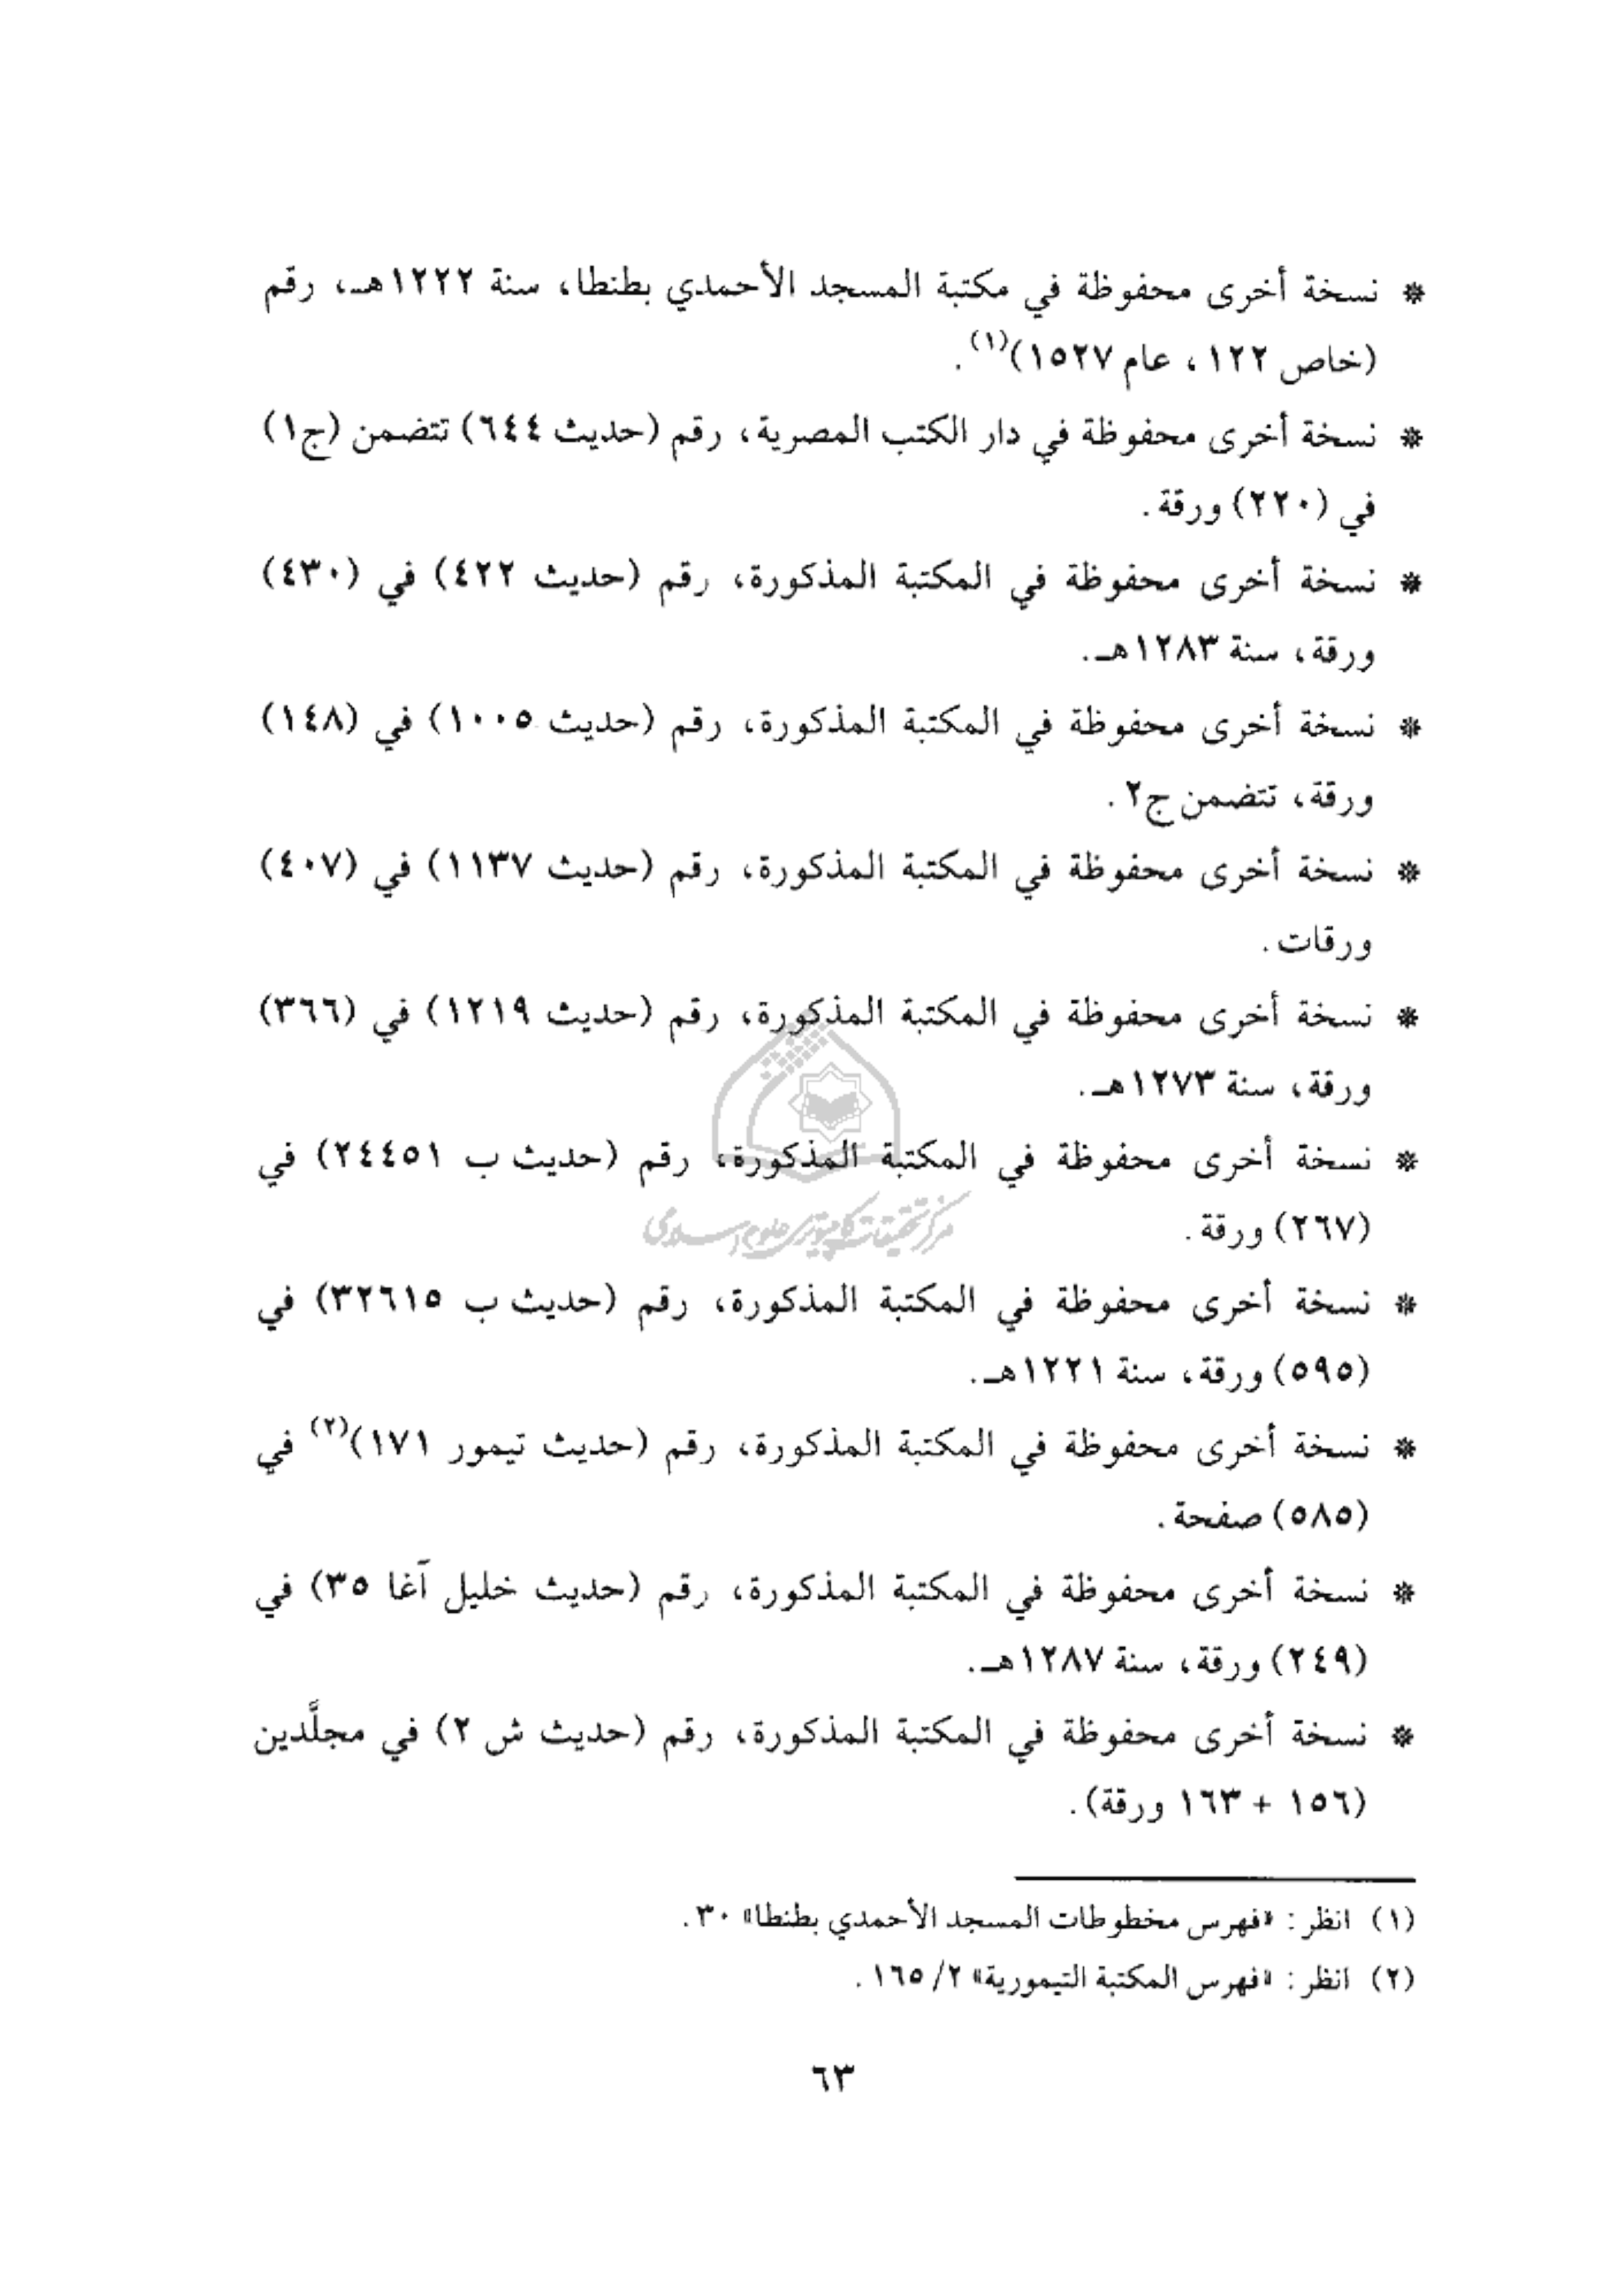 * نسخة أخرى محفوظة في مكتبة المسجد الأحمدي بطنطا، سنة ١٢٢٢هـ، رقم
(خاص ١٢٢، عام ١٥٢٧)(١).
* نسخة أخرى محفوظة في دار الكتب المصرية، رقم (حديث ٦٤٤) تتضمن (ج١)
في (٢٢٠) ورقة.
* نسخة أخرى محفوظة في المكتبة المذكورة، رقم (حديث ٤٢٢) في (٤٣٠)
ورقة، سنة ١٢٨٣هـ.
* نسخة أخرى محفوظة في المكتبة المذكورة، رقم (حديث ١٠٠٥) في (١٤٨)
ورقة، تتضمن ج٢.
* نسخة أخرى محفوظة في المكتبة المذكورة، رقم (حديث ١١٣٧) في (٤٠٧)
ورقات.
* نسخة أخرى محفوظة في المكتبة المذكورة، رقم (حديث ١٢١٩) في (٣٦٦)
ورقة، سنة ١٢٧٣هـ.
* نسخة أخرى محفوظة في المكتبة المذكورة، رقم (حديث ب ٢٤٤٥١) في
(٢٦٧) ورقة.
مرکز تحقیقات کامپیوتری علوم اسلامی
* نسخة أخرى محفوظة في المكتبة المذكورة، رقم (حديث ب ٣٢٦١٥) في
(٥٩٥) ورقة، سنة ١٢٢١هـ.
* نسخة أخرى محفوظة في المكتبة المذكورة، رقم (حديث تيمور ١٧١)(٢) في
(٥٨٥) صفحة.
* نسخة أخرى محفوظة في المكتبة المذكورة، رقم (حديث خليل آغا ٣٥) في
(٢٤٩) ورقة، سنة ١٢٨٧هـ.
* نسخة أخرى محفوظة في المكتبة المذكورة، رقم (حديث ش ٢) في مجلَّدين
(١٥٦ + ١٦٣ ورقة).
(١) انظر: «فهرس مخطوطات المسجد الأحمدي بطنطا» ٣٠.
(٢) انظر: «فهرس المكتبة التيمورية» ٢/ ١٦٥.
٦٣